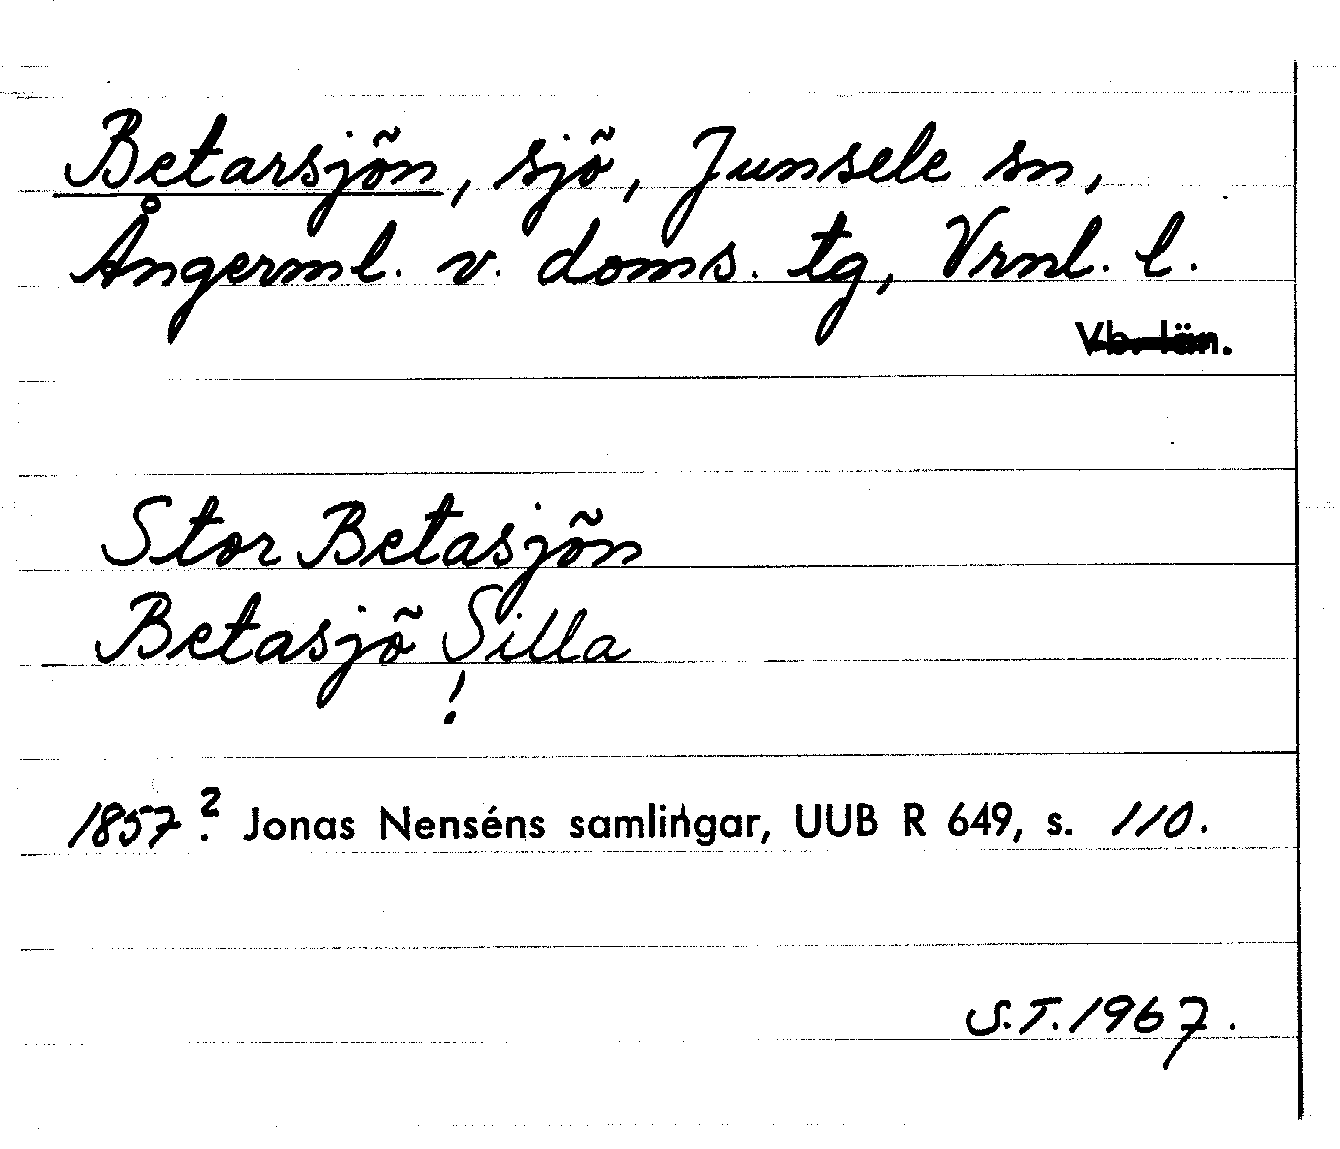 Betarsjön, sjö, Junsele sn,
Ångerml. v. doms. tg, Vrnl. l.
Vb. län.
Stor Betasjön
Betasjö Silla
!
1857? Jonas Nenséns samlingar, UUB R 649, s. 110.
S.T. 1967.